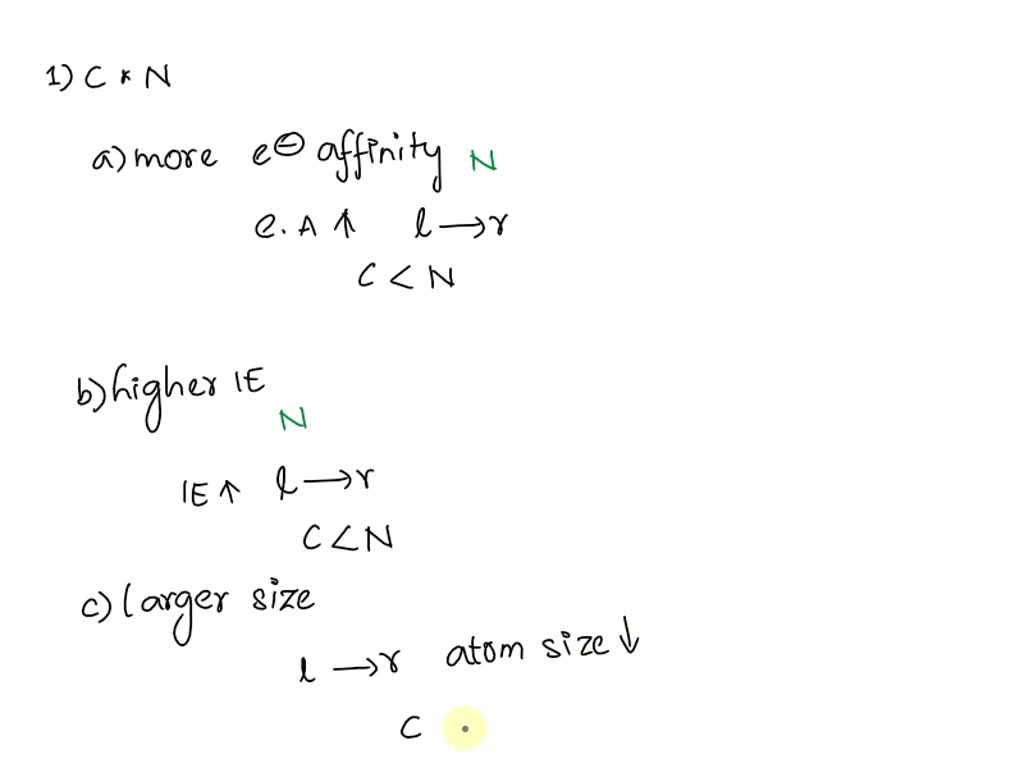 1) C & N
a) more e⊖ affinity N
e.A ↑ l → r
C < N
b) higher IE
N
IE ↑ l → r
C < N
c) larger size
l → r atom size ↓
C